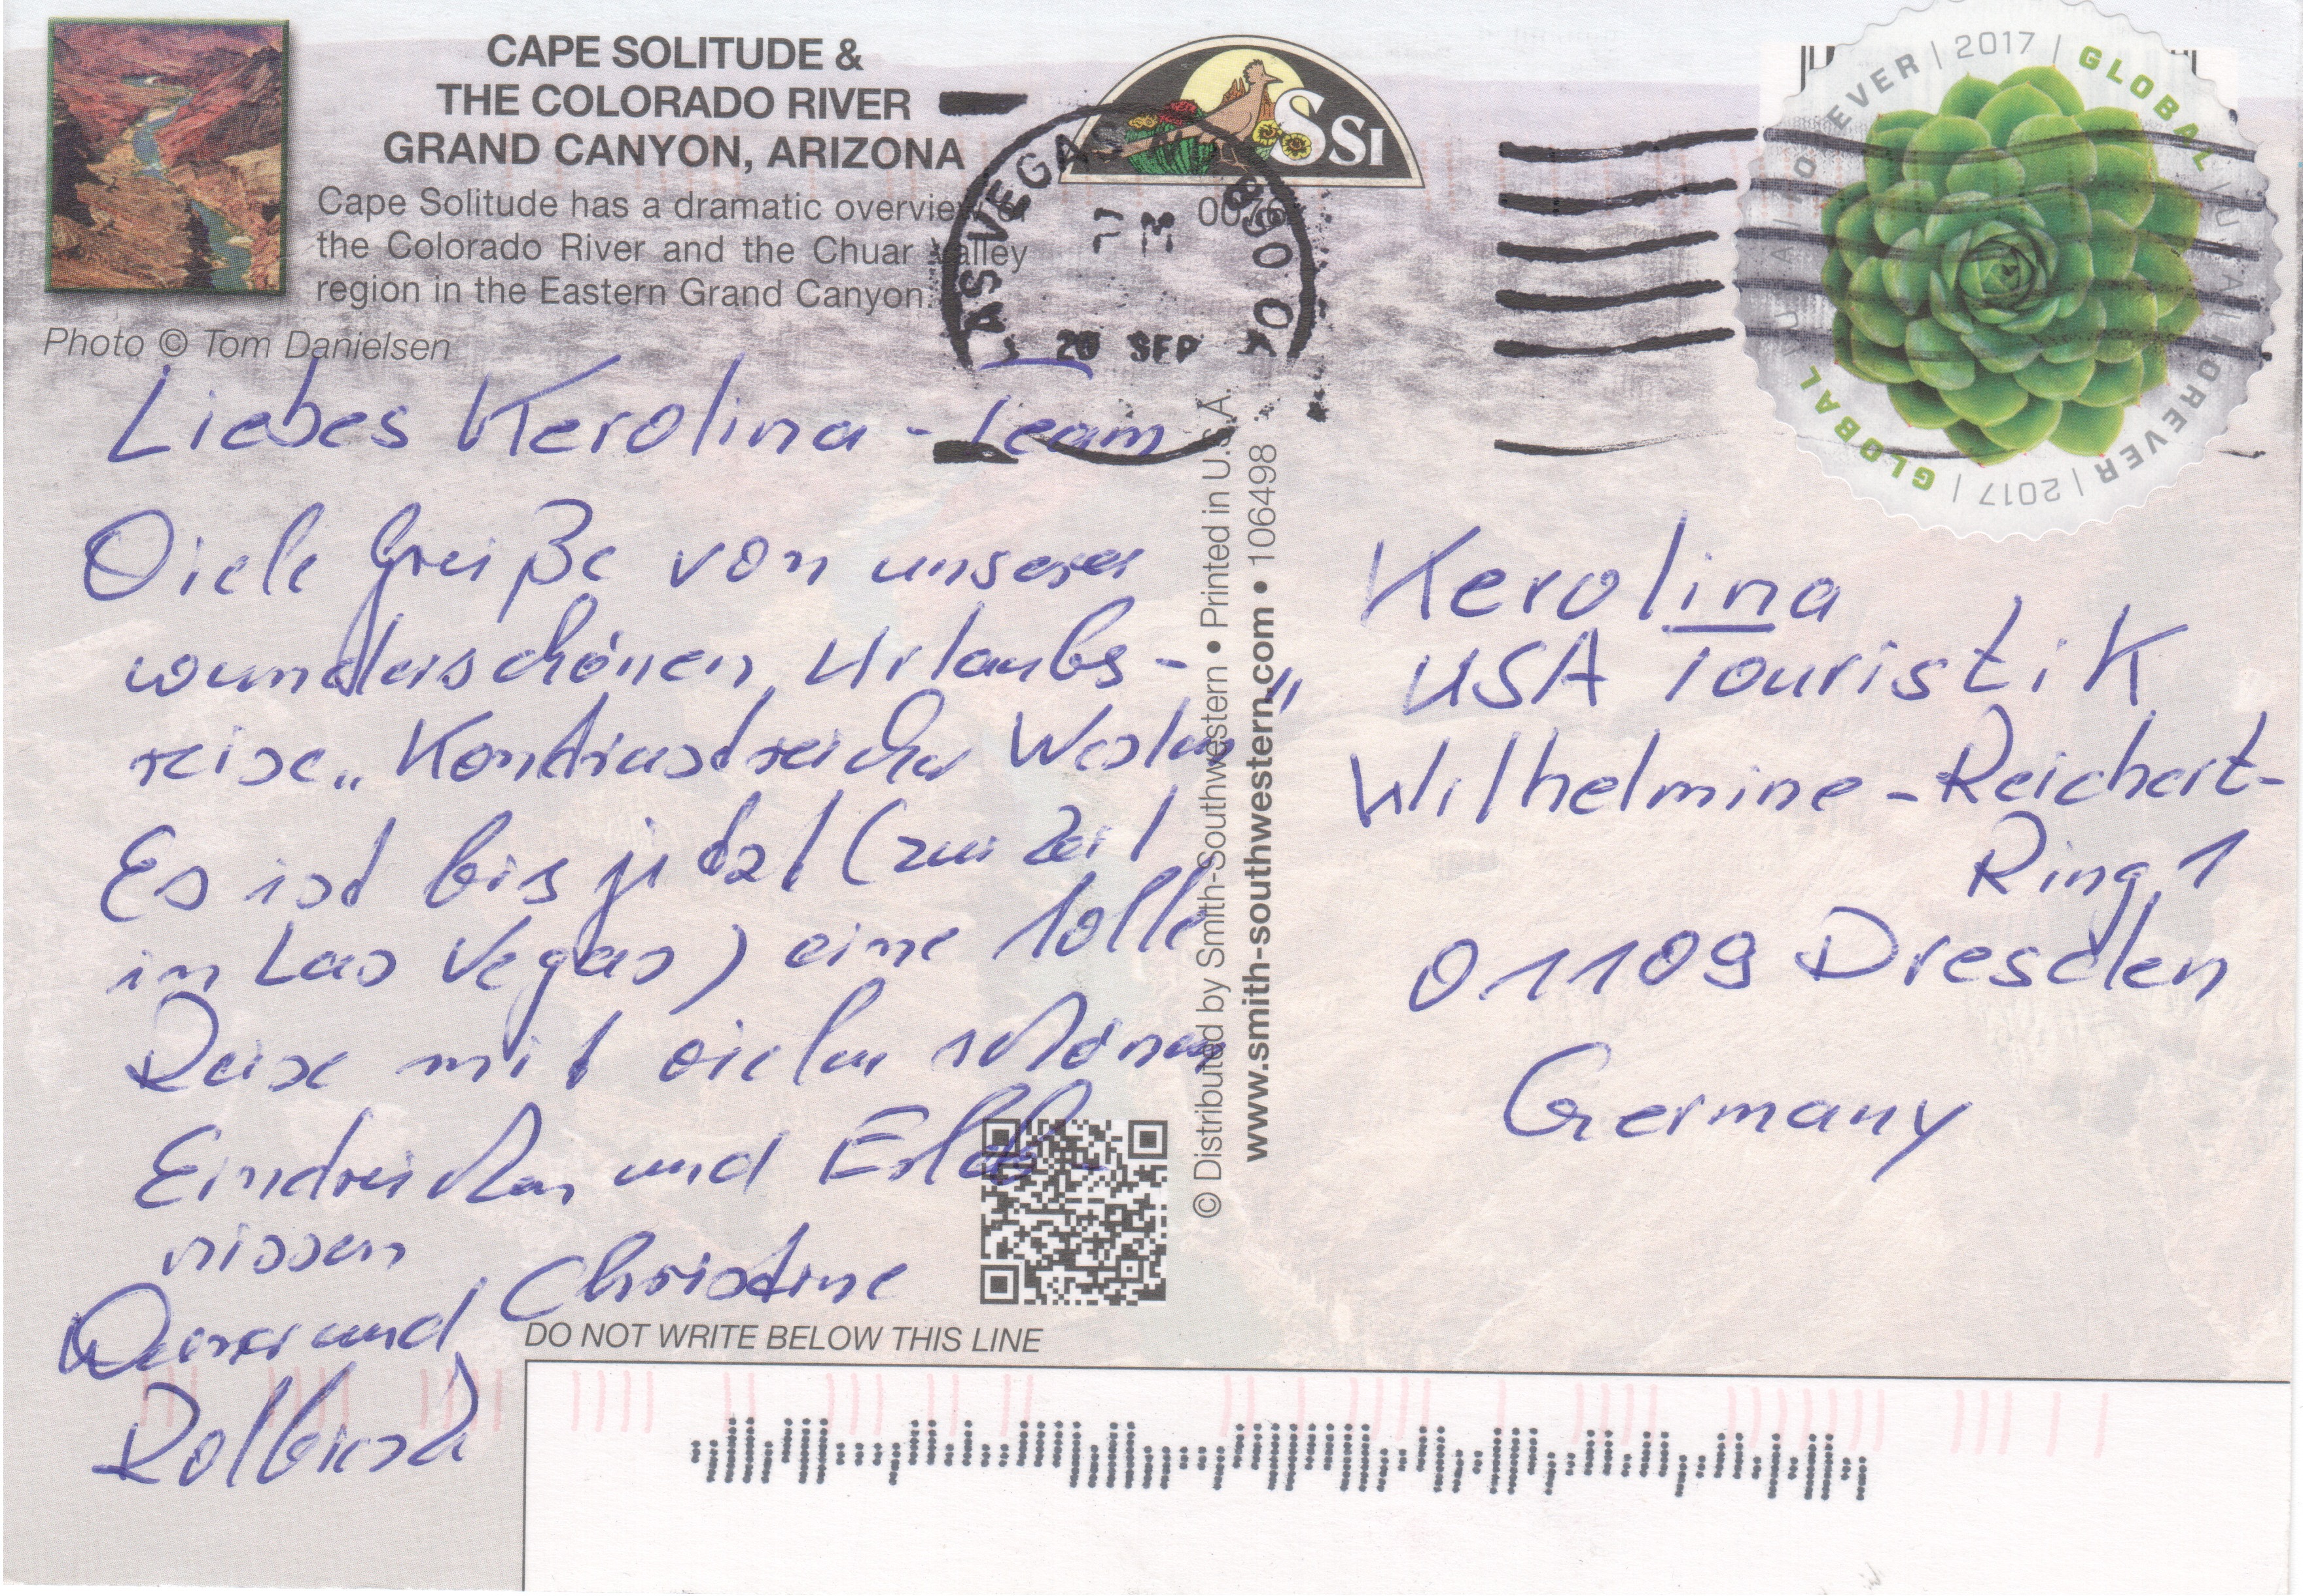 CAPE SOLITUDE &
THE COLORADO RIVER
GRAND CANYON, ARIZONA
Cape Solitude has a dramatic overview of
the Colorado River and the Chuar Valley
region in the Eastern Grand Canyon.
Photo © Tom Danielsen
SSI
LAS VEGAS NV 890
20 SEP
GLOBAL | USA | FOREVER | 2017 | GLOBAL | USA | FOREVER | 2017 |
Liebes Kerolina-Team
Viele Grüße von unserer
wunderschönen Urlaubs-
reise „Kontrastreicher Westen"
Es ist bis jetzt (zur Zeit
in Las Vegas) eine tolle
Reise mit vielen schönen
Eindrücken und Erleb-
nissen
Christine
und
© Distributed by Smith-Southwestern • Printed in U.S.A.
www.smith-southwestern.com • 106498
Kerolina
USA Touristik
Wilhelmine-Reichert-
Ring 1
01109 Dresden
Germany
DO NOT WRITE BELOW THIS LINE